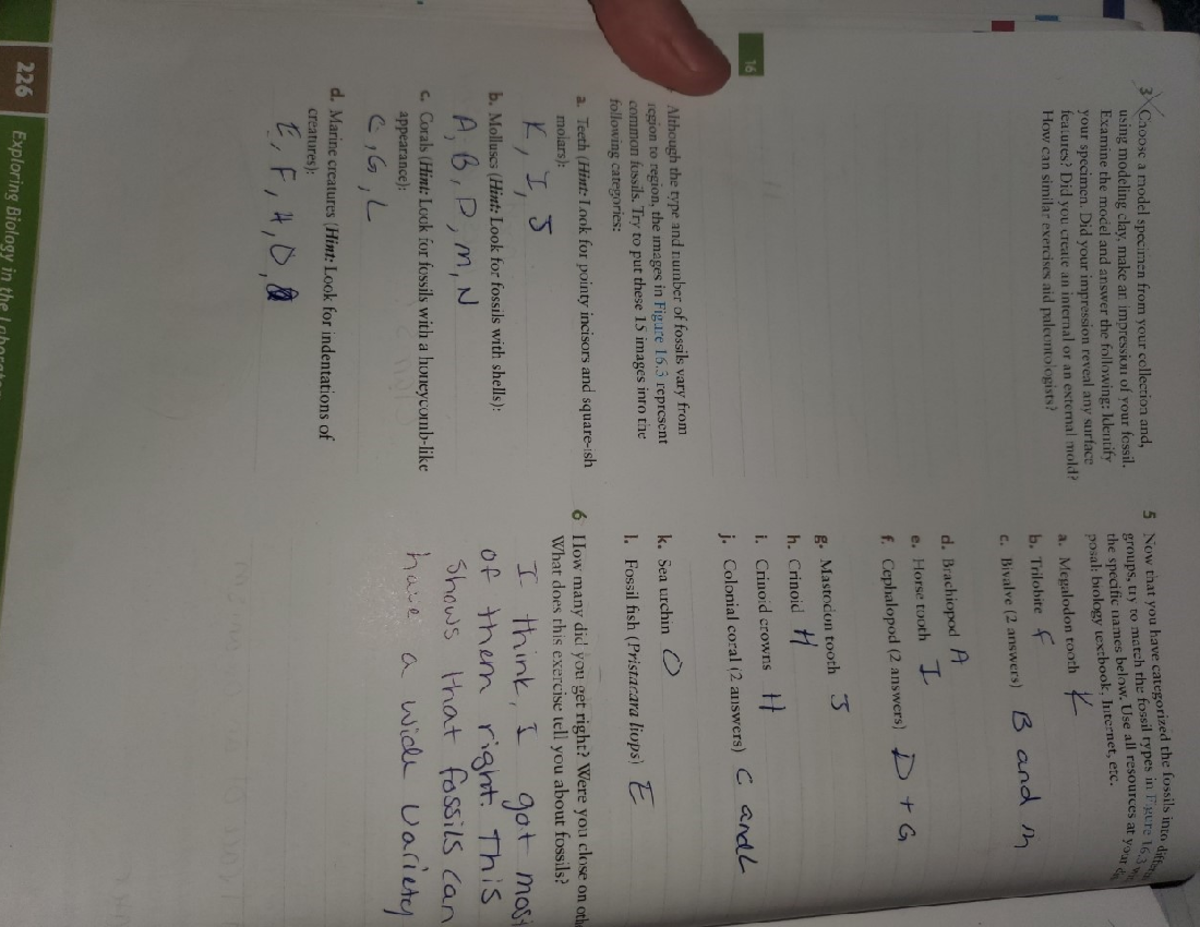 3 Choose a model specimen from your collection and,
using modeling clay, make an impression of your fossil.
Examine the model and answer the following: Identify
your specimen. Did your impression reveal any surface
features? Did you create an internal or an external mold?
How can similar exercises aid paleontologists?
16
Although the type and number of fossils vary from
region to region, the images in Figure 16.3 represent
common fossils. Try to put these 15 images into the
following categories:
a. Teeth (Hint: Look for pointy incisors and square-ish
molars):
K, I, J
b. Molluscs (Hint: Look for fossils with shells):
A, B, D, M, N
c. Corals (Hint: Look for fossils with a honeycomb-like
appearance):
C, G, L
d. Marine creatures (Hint: Look for indentations of
creatures):
E, F, H, O,
5 Now that you have categorized the fossils into
groups, try to match the fossil types in Figure 16.3
the specific names below. Use all resources at your
posal: biology textbook, Internet, etc.
a. Megalodon tooth K
b. Trilobite F
c. Bivalve (2 answers) B and M
d. Brachiopod A
e. Horse tooth I
f. Cephalopod (2 answers) D + G
g. Mastodon tooth J
h. Crinoid H
i. Crinoid crowns H
j. Colonial coral (2 answers) C and L
k. Sea urchin O
l. Fossil fish (Pristarara liops) E
6 How many did you get right? Were you close on
What does this exercise tell you about fossils?
I think, I got most
of them right. This
shows that fossils can
have a wide variety
226 Exploring Biology in the